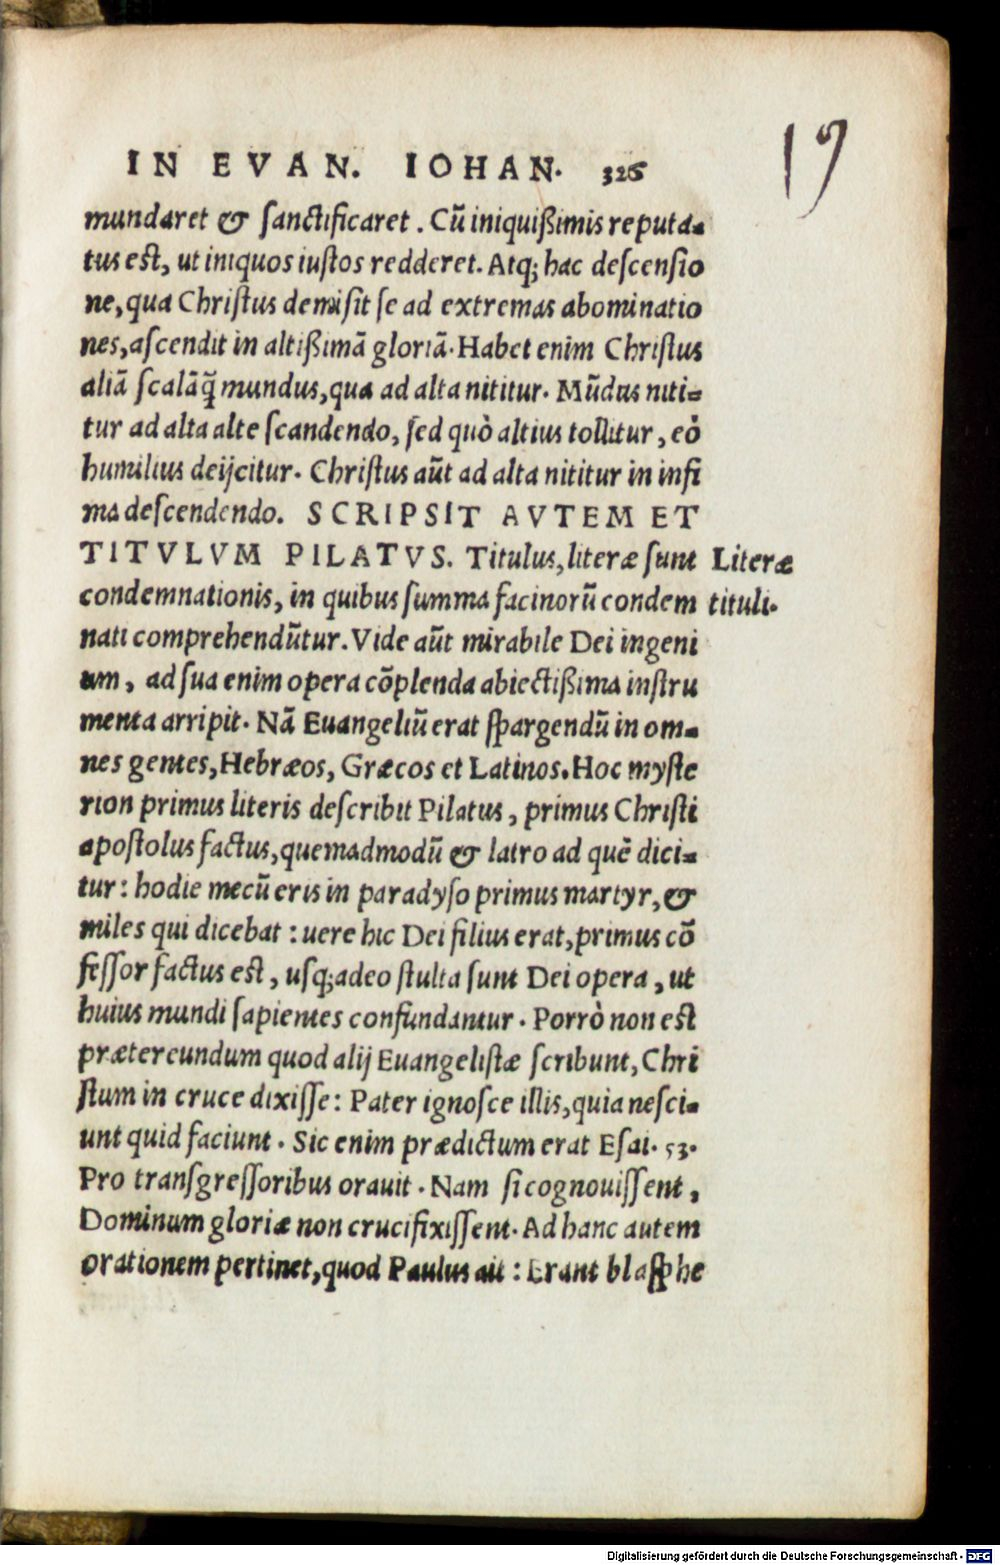 19
IN EVAN. IOHAN. 326
mundaret & ſanctificaret. Cũ iniquißimis reputa-
tus est, ut iniquos iuſtos redderet. Atq; hac deſcenſio
ne, qua Chriſtus demiſit ſe ad extremas abominatio
nes, aſcendit in altißimã gloriã. Habet enim Chriſtus
aliã ſcalãq̃ mundus, qua ad alta nititur. Mũdus niti-
tur ad alta alte ſcandendo, ſed quò altius tollitur, eò
humilius deijcitur. Chriſtus aũt ad alta nititur in infi
ma deſcendendo. SCRIPSIT AVTEM ET
TITVLVM PILATVS. Titulus, literæ ſunt Literæ
condemnationis, in quibus ſumma facinorũ condem tituli.
nati comprehendũtur. Vide aũt mirabile Dei ingeni
um, ad ſua enim opera cõplenda abiectißima inſtru
menta arripit. Nã Euangeliũ erat ſpargendũ in om-
nes gentes, Hebræos, Græcos et Latinos. Hoc myſte
rion primus literis deſcribit Pilatus, primus Chriſti
apoſtolus factus, quemadmodũ & latro ad quẽ dici-
tur: hodie mecũ eris in paradyſo primus martyr, &
miles qui dicebat: uere hic Dei filius erat, primus cõ
feſſor factus est, uſq; adeo ſtulta ſunt Dei opera, ut
huius mundi ſapientes confundantur. Porrò non est
prætereundum quod alij Euangeliſtæ ſcribunt, Chri
ſtum in cruce dixiſſe: Pater ignoſce illis, quia neſci-
unt quid faciunt. Sic enim prædictum erat Eſai. 53.
Pro tranſgreſſoribus orauit. Nam ſi cognouiſſent,
Dominum gloriæ non crucifixiſſent. Ad hanc autem
orationem pertinet, quod Paulus ait: Erant blaſphe
Digitalisierung gefördert durch die Deutsche Forschungsgemeinschaft - DFG